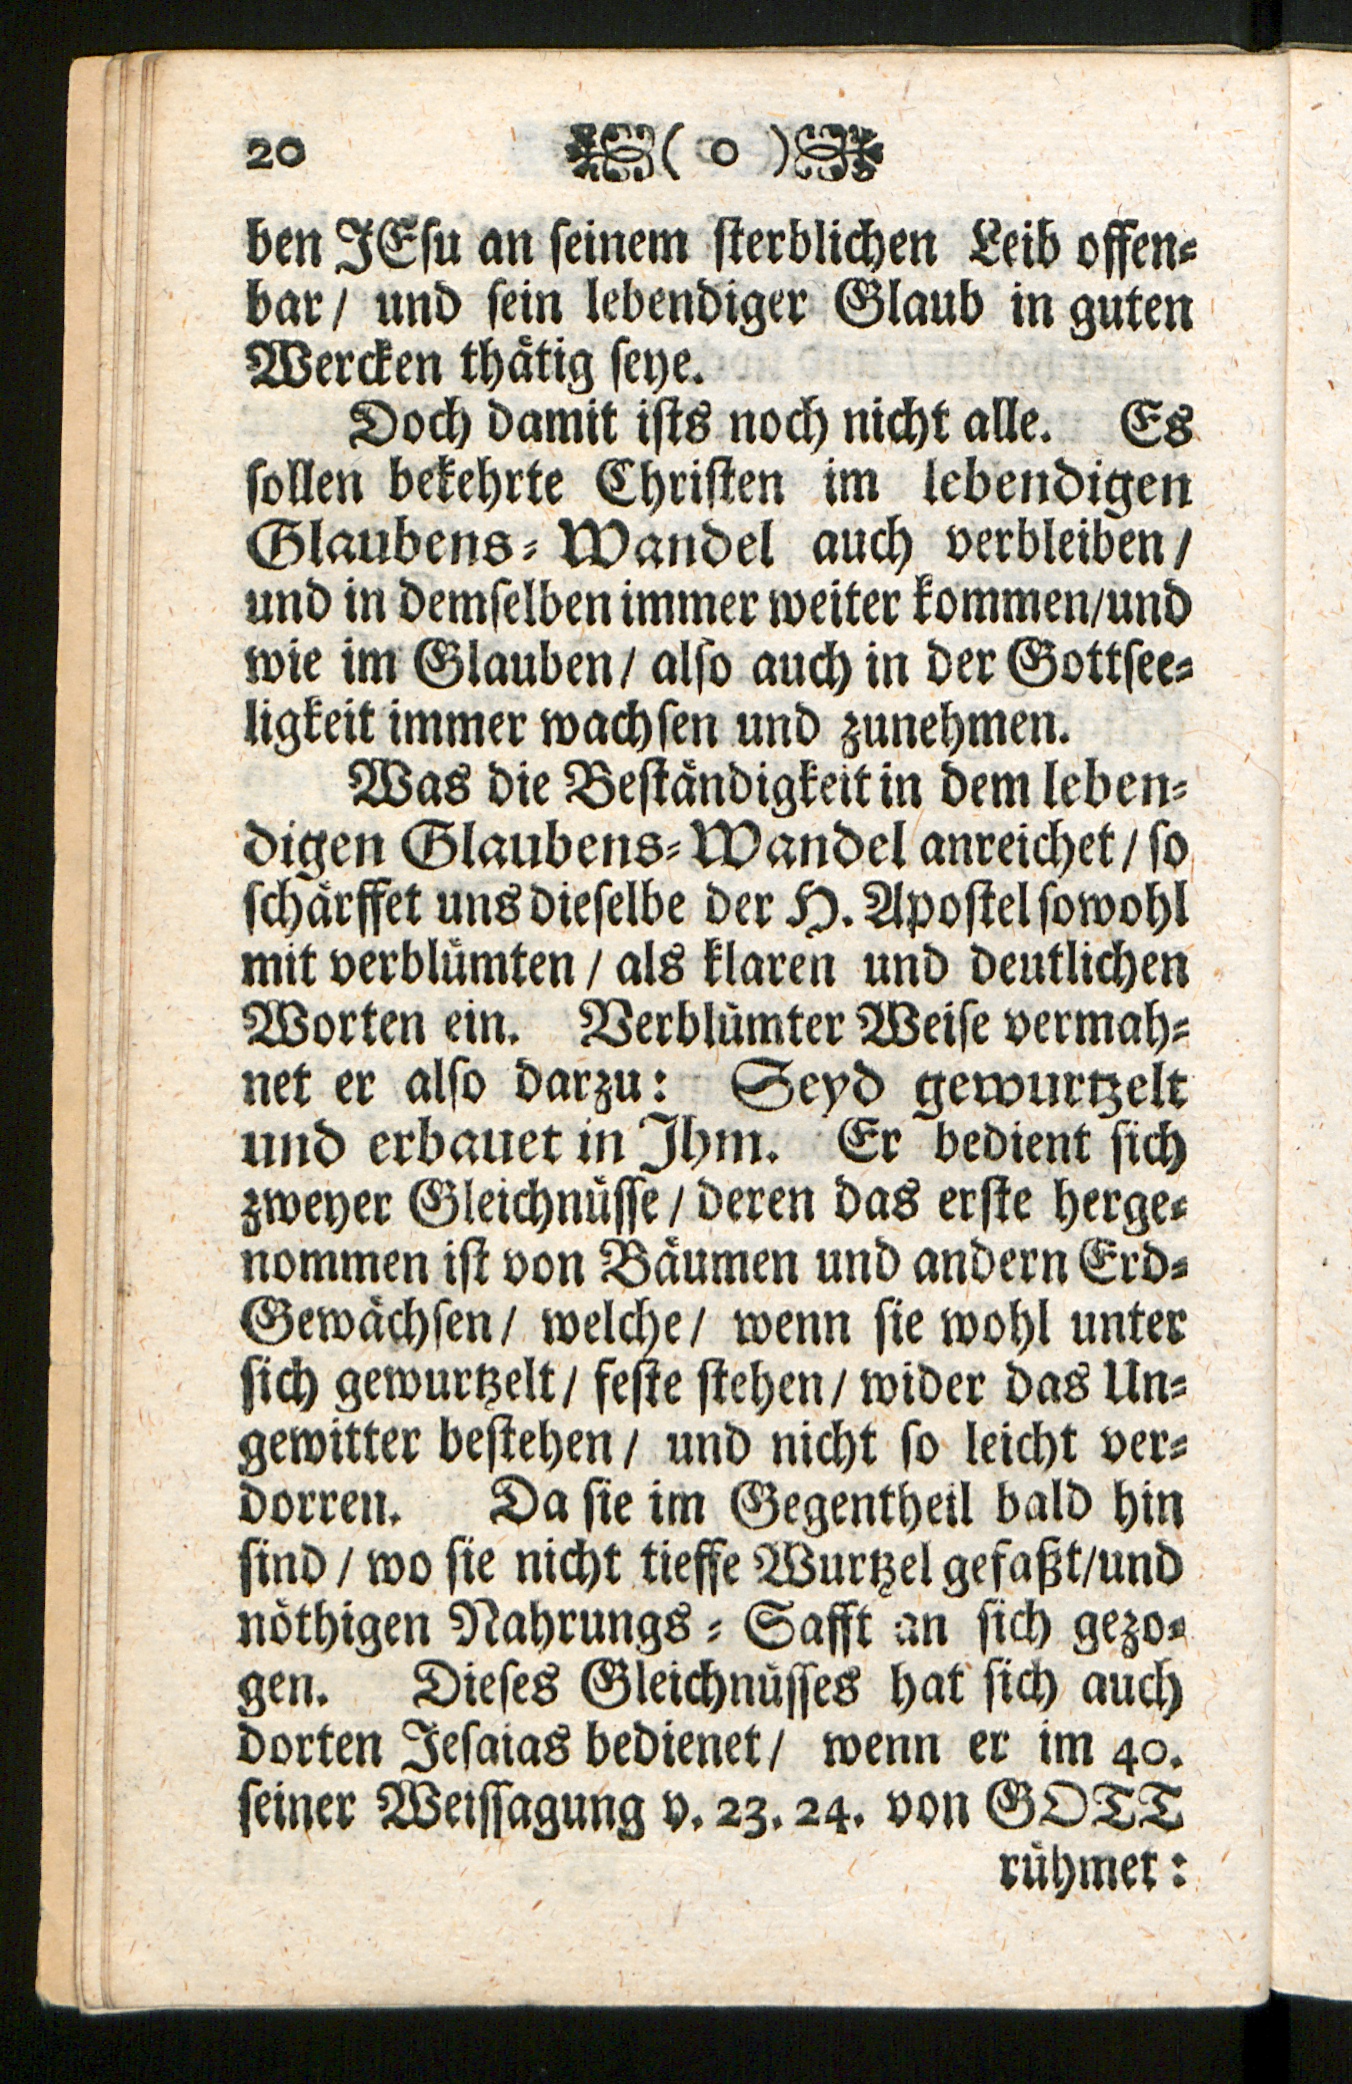 20 ( o )
ben JEſu an ſeinem ſterblichen Leib offen⸗
bar/ und ſein lebendiger Glaub in guten
Wercken thaͤtig ſeye.
Doch damit iſts noch nicht alle. Es
ſollen bekehrte Chriſten im lebendigen
Glaubens⸗Wandel auch verbleiben/
und in demſelben immer weiter kommen/und
wie im Glauben/ alſo auch in der Gottſee⸗
ligkeit immer wachſen und zunehmen.
Was die Beſtaͤndigkeit in dem leben⸗
digen Glaubens⸗Wandel anreichet/ ſo
ſchaͤrffet uns dieſelbe der H. Apoſtel ſowohl
mit verbluͤmten/ als klaren und deutlichen
Worten ein. Verbluͤmter Weiſe vermah⸗
net er alſo darzu: Seyd gewurtzelt
und erbauet in Ihm. Er bedient ſich
zweyer Gleichnuͤſſe/ deren das erſte herge⸗
nommen iſt von Baͤumen und andern Erd⸗
Gewaͤchſen/ welche/ wenn ſie wohl unter
ſich gewurtzelt/ feſte ſtehen/ wider das Un⸗
gewitter beſtehen/ und nicht ſo leicht ver⸗
dorren. Da ſie im Gegentheil bald hin
ſind/ wo ſie nicht tieffe Wurtzel gefaßt/und
noͤthigen Nahrungs⸗Safft an ſich gezo⸗
gen. Dieſes Gleichnuͤſſes hat ſich auch
dorten Jeſaias bedienet/ wenn er im 40.
ſeiner Weiſſagung v. 23. 24. von GOTT
ruͤhmet: